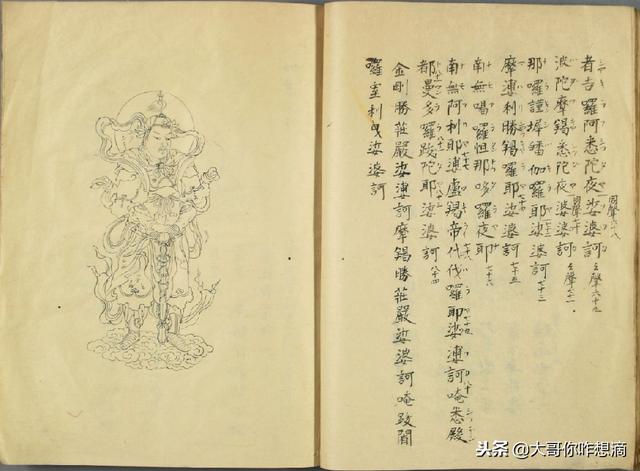 者吉囉阿悉陀夜娑婆訶
波陀摩羯悉陀夜娑婆訶
那囉謹墀皤伽羅耶娑婆訶 七十三
摩溥利勝羯羅耶娑婆訶 七十五
南無喝囉怛那哆羅夜耶 七十六
南無阿利耶溥盧羯帝代伐羅耶娑溥訶唵悉殿
都曼多羅跋陀耶娑婆訶 八十四
金剛勝莊嚴娑溥訶摩羯勝莊嚴娑婆訶唵跋闍
囉室利曳娑婆訶
头条 @大哥你咋想滴